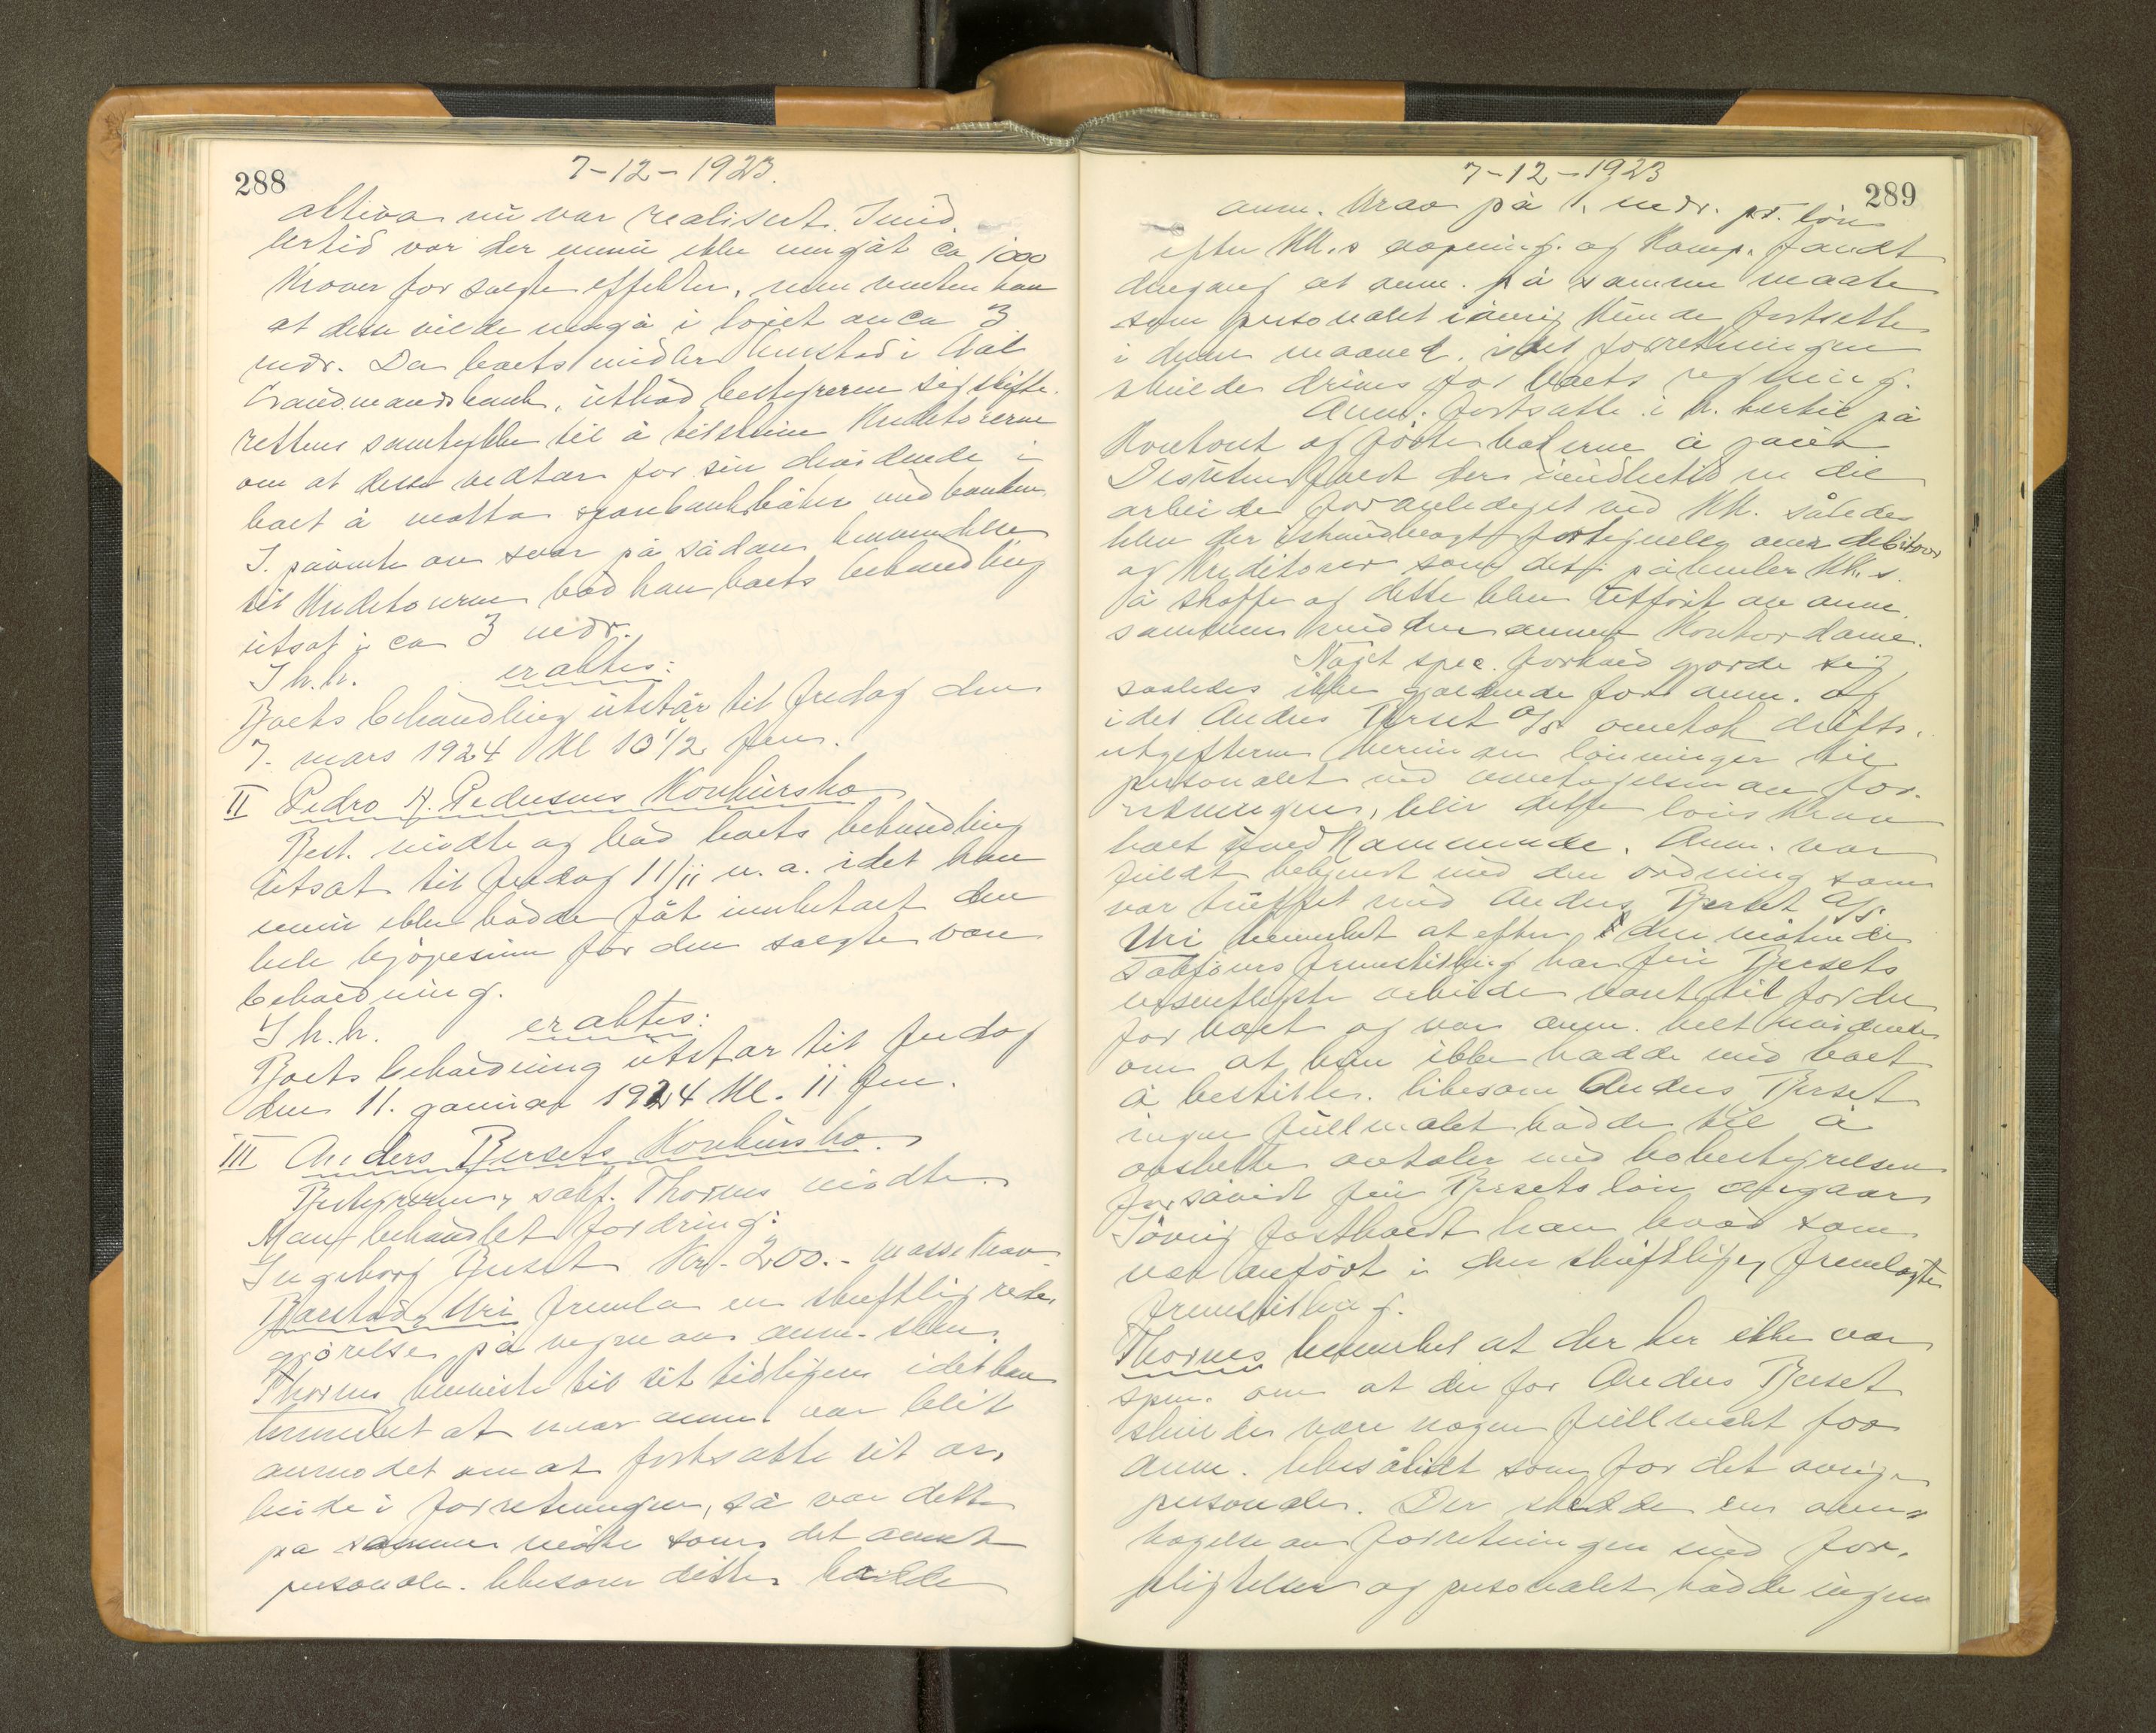 288
7-12-1923.
aktiva nu var realisert. Imid-
lertid var der ennu ikke inngåt ca 1000
kroner for solgte effekter, men venten han
at dem vilde inngå i løpet av ca 3
mdr. Da boets midler innstod i Aal
Landmandsbank, utbad bestyreren sig skifte-
rettens samtykke til å tilskrive kreditorerne
om at disse vedtar for sin dividende i
boet å motta sparebankbøker med banken.
I påvente av svar på sådan henvendelse
til kreditorerne bad han boets behandling
utsat i ca 3 mdr.
I h.h. eraktes:
Boets behandling utstår til fredag den
7. mars 1924 kl 10 1/2 fm.
II Pedro A. Pedersens Konkursbo
Best. mødte og bad boets behandling
utsat til fredag 11/11 n.a. idet han
ennu ikke hadde fåt innbetalt den
hele kjøpesum for den solgte vare
behoidning.
I h.h. eraktes:
Boets behandling utstår til fredag
den 11. januar 1924 kl. 11 fm.
III Anders Bersets Konkursbo.
Bestyreren, sakf. Thornes mødte.
Man behandlet fordring:
Ingeborg Berset kr. 200.- massekrav
Baarstad, Uri fremla en skriftlig rede-
gjørelse på vegne av anm.
Thornes henviste til sit tidligere idet han
bemerket at naar anm. var blit
anmodet om at fortsætte sit ar-
beide i forretningen, så var dette
på samme måte som det annet
personale. likesom dette hadde
7-12-1923
289
anm. krav på 1. mdr. løn
efter kk.s aapning. og Komp. fandt
dengang at anm. på samme maate
som personalet iøvrig kunde fortsette
i denne maaned. idet forretningen
skulde drives for boets regning.
Anm. fortsatte i h. hertil på
Kontoret og førte bøkerne à jour
Desuten faldt der imidlertid en del
arbeide foranlediget ved kk. således
blev der istandbragt fortegnelse over debitorer
og kreditorer som det påhviler kk.s.
å skaffe og dette blev utført av anm.
sammen med den annen kontordame.
Noget spec. forhold gjorde sig
saaledes ikke gjældende for anm. og
idet Anders Berset A/S overtok drifts-
utgifterne herunder lønninger til
personalet ved overtagelsen av for-
retningen, blir dette lønskrav
boet uvedkommende. Anm. var
fuldt bekjendt med den ordning som
var truffet med Anders Berset A/S.
Uri bemerket at efter den møtende
sakførers fremstilling har frk Bersets
vesentligste arbeide vært til fordel
for boet og var anm. helt uvidende
om at hun ikke hadde med boet
å bestille. likesom Anders Berset
ingen fullmakt hadde til å
avslutte avtaler med bobestyrelsen
forsåvidt frk Bersets løn angaar
Iøvrig fastholdt han hvad som
var anført i den skriftlige, fremlagte
fremstilling.
Thornes bemerket at der her ikke var
spm. om at der for Anders Berset
skulde være nogen fullmakt for
anm. likesålidt som for det øvrige
personale. Der skedde en over-
tagelse av forretningen med for-
pligtelser og personalet hadde ingen